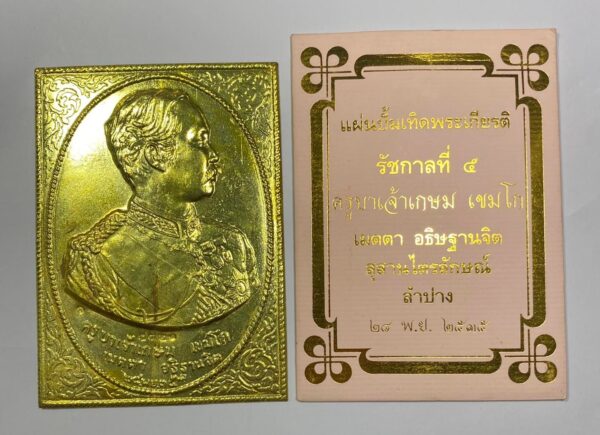 ครูบาเจ้าเกษม เขมโก
เมตตา อธิษฐานจิต
แผ่นปั๊มเทิดพระเกียรติ
รัชกาลที่ ๕
ครูบาเจ้าเกษม เขมโก
เมตตา อธิษฐานจิต
สุสานไตรลักษณ์
ลำปาง
๒๘ พ.ย. ๒๕๓๕